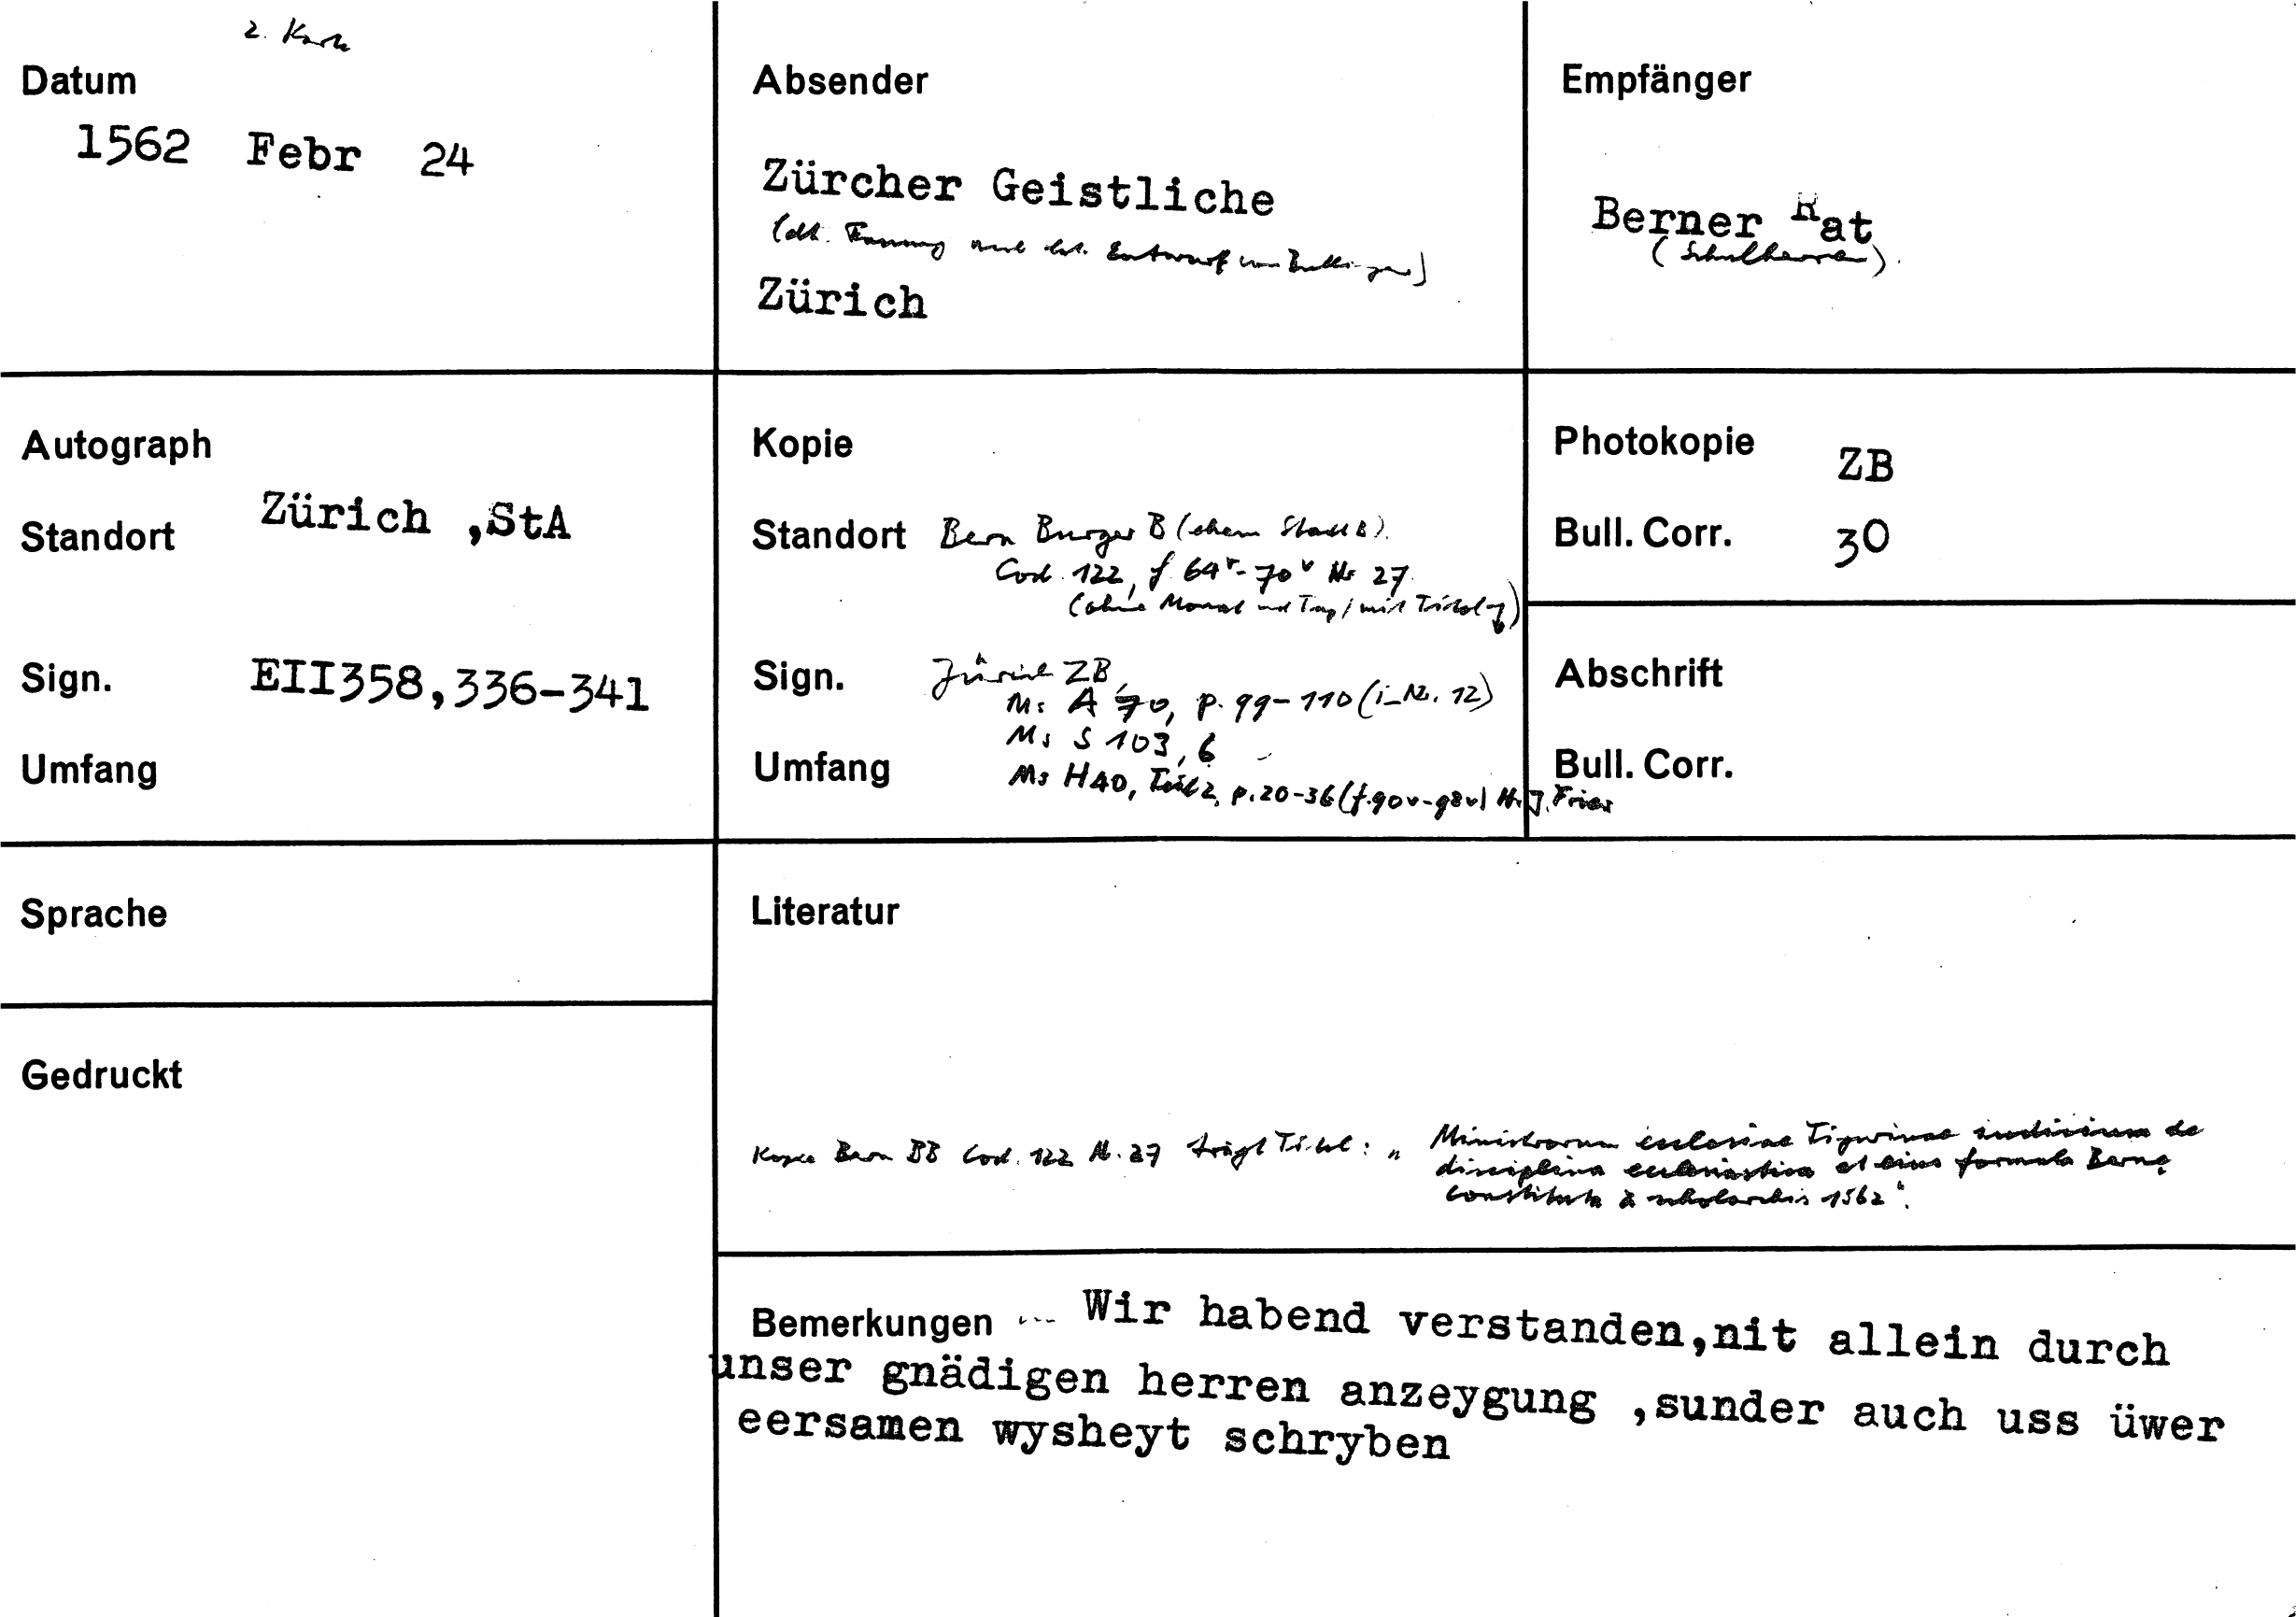 2. Karte
Datum
1562 Febr 24
Absender
Zürcher Geistliche
(dt. Fassung nach lat. Entwurf von Bullinger)
Zürich
Empfänger
Berner Rat
(Schulherren).
Autograph
Standort Zürich ,StA
Sign. EII358,336-341
Umfang
Kopie
Standort Bern Burger B (ehem Stadt B).
Cod. 122, f 64r-70v Nr 27.
(ohne Monat und Tag / mit Titel ↓)
Sign. Zürich ZB,
Ms A 70, p. 99-110 (Nr. 12)
Ms S 103, 6
Umfang Ms H40, Teil 2, p.20-36 (f.90v-98v) J. Fries
Photokopie ZB
Bull. Corr. 30
Abschrift
Bull. Corr.
Sprache
Literatur
Kopie Bern BB Cod. 122 Nr. 27 trägt Titel: „Ministrorum ecclesiae Tigurinae iudicium de
disciplina ecclesiastica et eius formula Bernę
constituta à scholarchis 1562".
Gedruckt
Bemerkungen ... Wir habend verstanden,nit allein durch
unser gnädigen herren anzeygung ,sunder auch uss üwer
eersamen wysheyt schryben